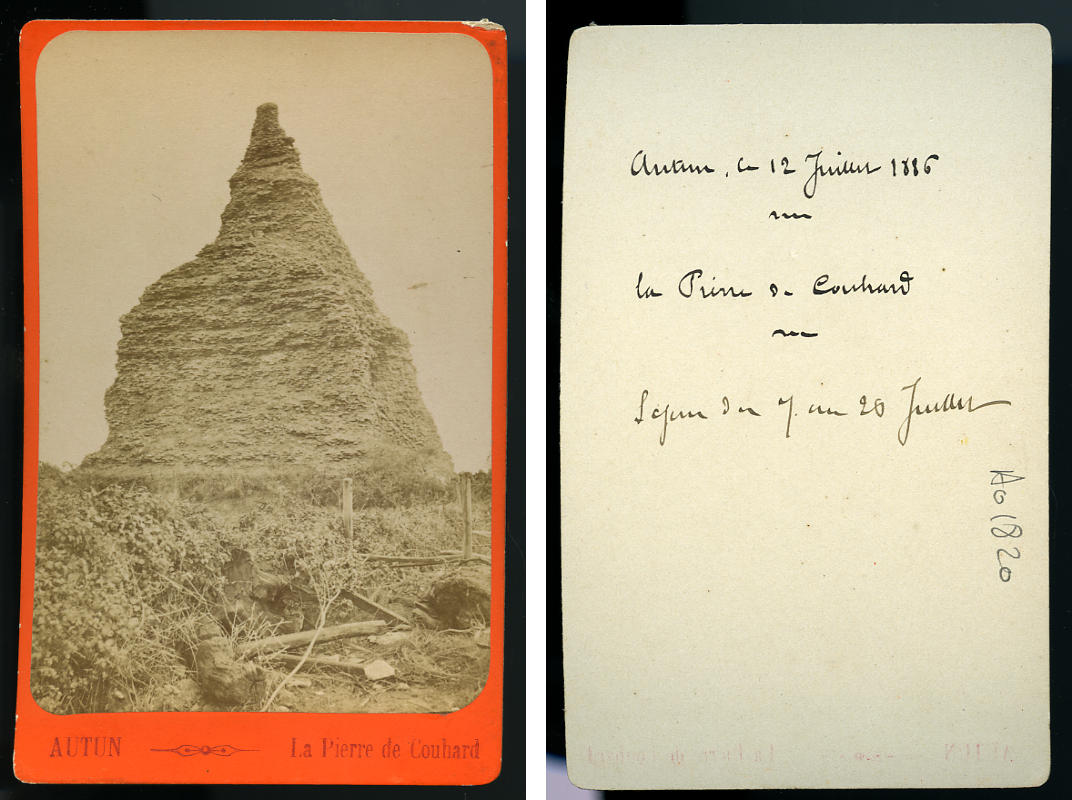 AUTUN La Pierre de Couhard
Autun, le 12 Juillet 1886
la Pierre de Couhard
Séjour du 7 au 20 Juillet
Ao 1820